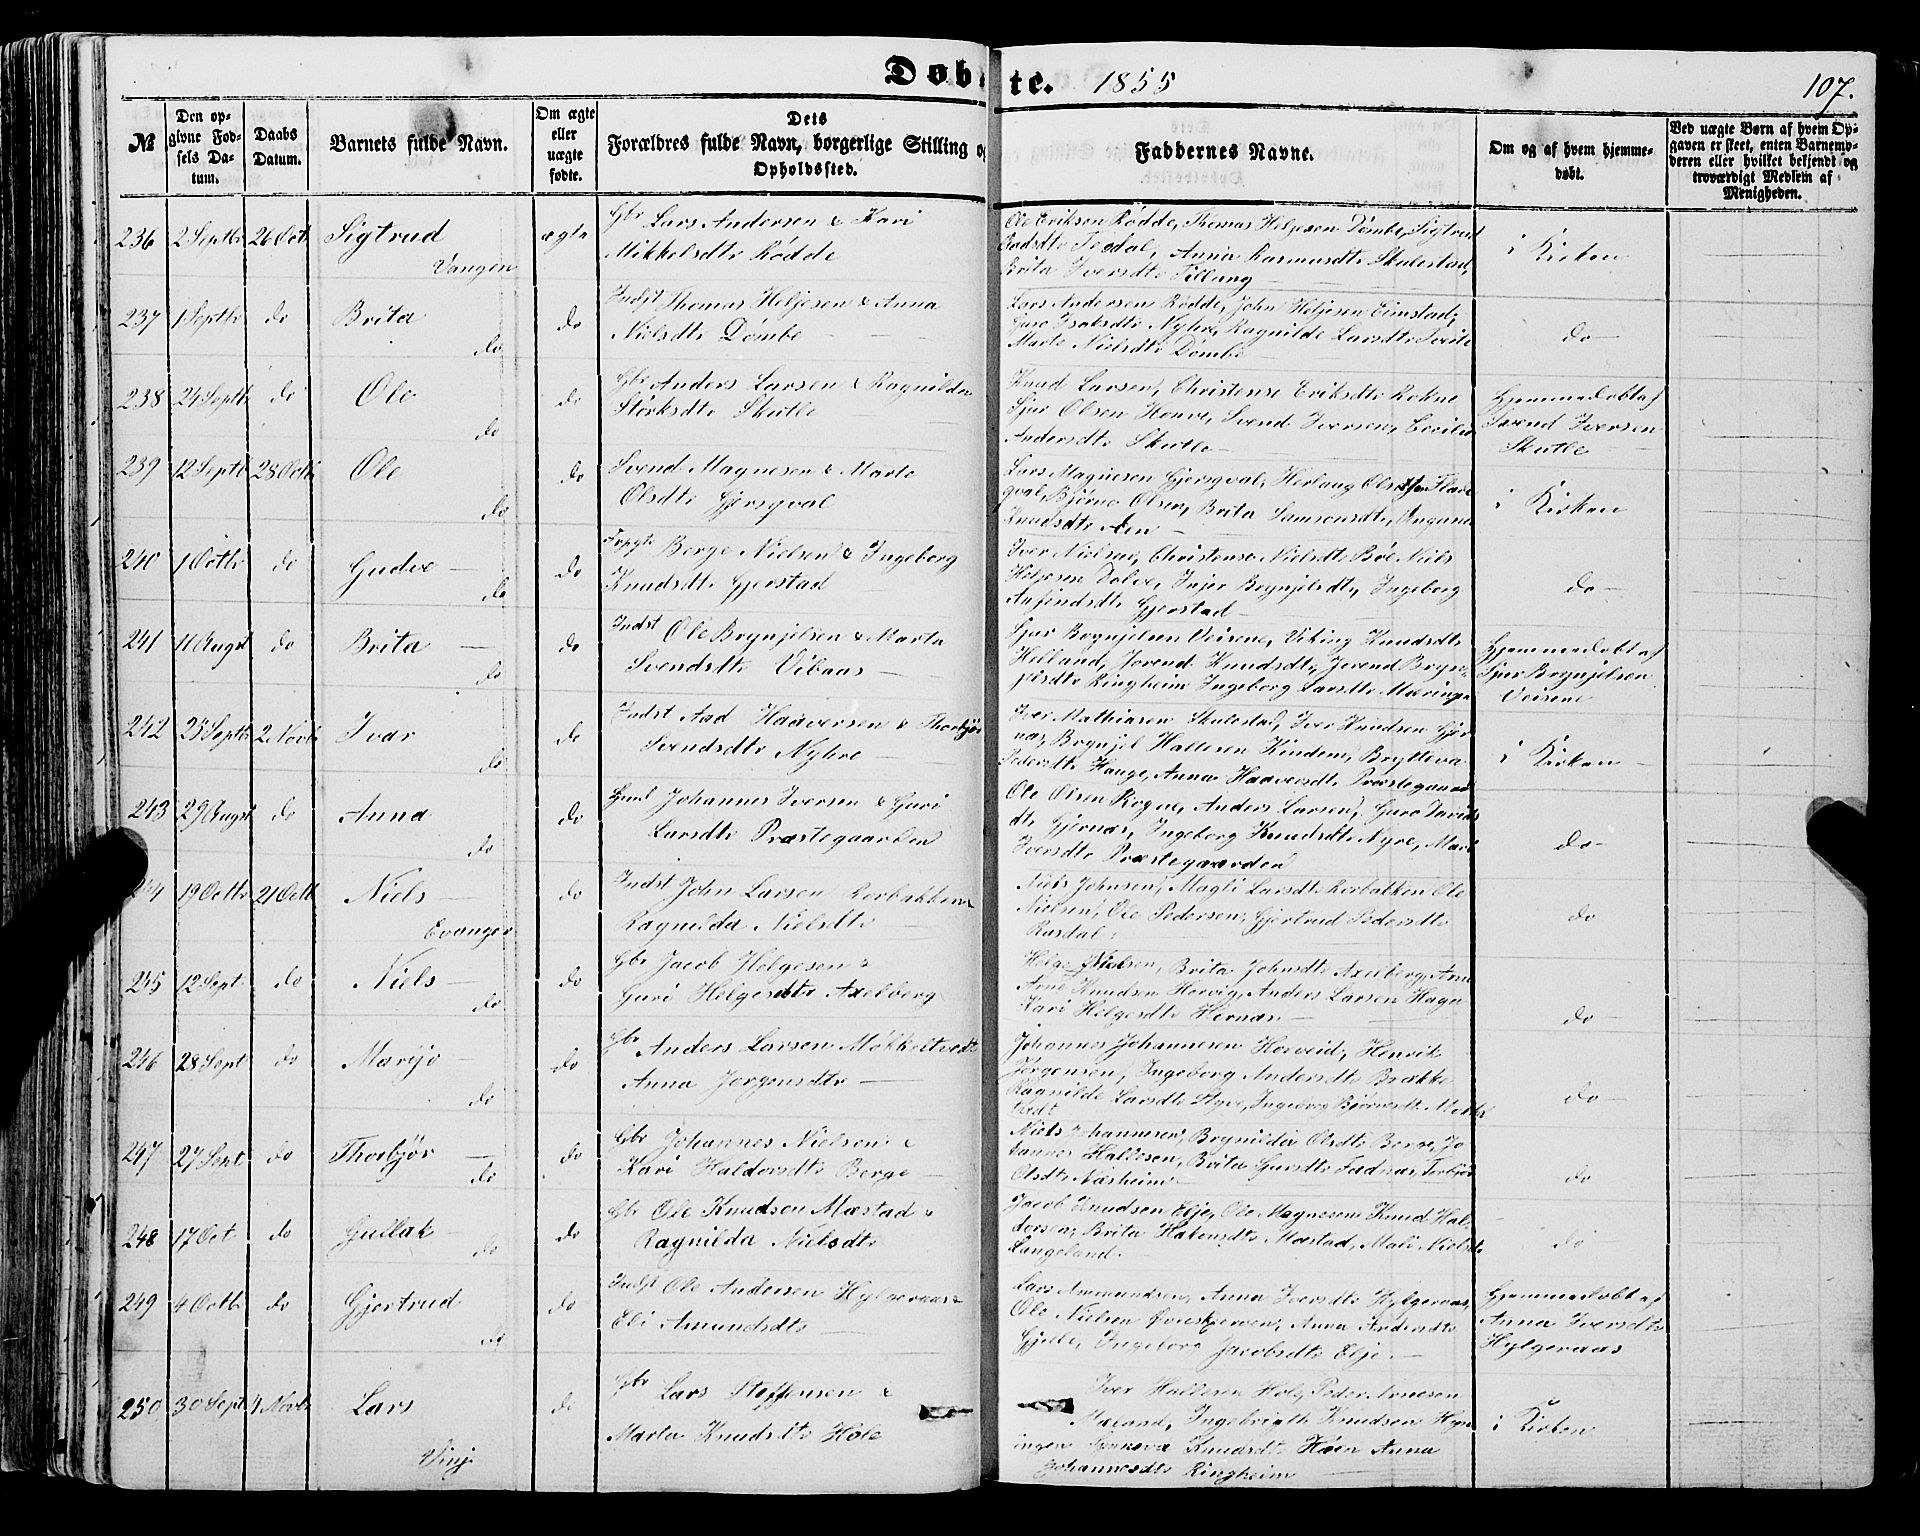 Døbte. 1855
107.
№
Den opgivne Fødsels Datum.
Daabs Datum.
Barnets fulde Navn.
Om ægte eller uægte fødte.
Dets Forældres fulde Navn, borgerlige Stilling og Opholdssted.
Faddernes Navne.
Om og af hvem hjemmedøbt.
Ved uægte Børn af hvem Opgaven er skeet, enten Barnemoderen eller hvilket bekjendt og troværdigt Medlem af Menigheden.
236 2 Septbr 26 Oct Sigtrud Vangen ægte
Gbr Lars Andersen & Kari
Mikkelsdtr Rødde
Ole Eriksen Rødde, Thomas Heljesen Dømbe, Sigtrud
Tesdal, Anna Rasmusdtr Skulestad,
Brita Iversdtr Tillung
i Kirken
237 1 Septbr do Brita do do
Indst Thomas Heljesen & Anna
Nielsdtr Dømbe
Lars Andersen Rødde, John Heljesen Eimstad,
Nyhre, Ragnilde Larsdtr Tvite
Marte Nielsdtr Dømbe
do
238 24 Septbr do Ole do do
Gbr Anders Larsen & Ragnilda
Størksdtr Skutle
Knud Larsen, Christense Eriksdtr Rokne
Sjur Olsen Honve, Svend Iversen, Cecilia
Andersdtr Skutle
Hjemmedøbt af
Svend Iversen
Skutle
239 12 Septbr 28 Octbr Ole do do
Svend Magnesen & Marte
Olsdtr Gjersgval
Lars Magnesen Gjersgval, Herlaug
Bjørne Olsen, Brita Samsonsdtr,
Knudsdtr Aen
i Kirken
240 1 Octbr do Gudve do do
Berge Nielsen & Ingeborg
Knudsdtr Gjerstad
Iver Nielsen, Christense Nielsdtr Bøe, Niels
Heljesen Dolve, Inger Brynjelsdtr, Ingeborg
Anfindsdtr Gjerstad
do
241 11 Augst do Brita do do
Indst Ole Brynjelsen & Marta
Svendsdtr Vibaas
Sjur Brynjelsen Veisene, Viking Knudsdtr
Helland, Jorend Knudsdtr, Jorend Bryn-
jelsdtr Ringheim, Ingeborg Larsdtr Mæringe
Hjemmedøbt af
Sjur Brynjelsen
Veisene
242 25 Septbr 2 Novbr Ivar do do
Indst Aad Haaversen & Thorbjør
Svendsdtr Nyhre
Iver Mathiasen Skulestad, Iver Knudsen Gjer-
næs, Brynjel Haldesen Kindem, Brytteva
Pedersdtr Hauge, Anna Haaversdtr Præstegaard
i Kirken
243 29 Augst do Anna do do
Johannes Iversen & Guri
Larsdtr Præstegaarden
Ole Olsen Rogne, Anders Larsen, Guro Davids-
dtr Gjernæs, Ingeborg Knudsdtr Nyre, Mari
Iversdtr Præstegaarden
do
19 Octbr 21 Octbr Niels Evanger do
Indst John Larsen Rorbakken &
Ragnilda Nielsdtr
Niels Johnsen, Magli Larsdtr Rorbakken, Ole
Nielsen, Ole Pedersen, Gjertrud Pedersdtr
Rasdal
do
245 12 Sept do Niels do do
Gbr Jacob Helgesen &
Guri Helgesdtr Axelberg
Helge Nielsen, Brita Johnsdtr Axelberg,
Arne Knudsen Hervig, Anders Larsen
Kari Helgesdtr Hernæs
do
246 28 Sept do Marjo do do
Gbr Anders Larsen Møkkeltvedt
Anna Jorgensdtr
Johannes Johannesen Horveid, Henrik
Jørgensen, Ingeborg Andersdtr Brække
Ragnilde Larsdtr Styve, Ingeborg
tvedt
do
247 27 Sept do Thorbjør do do
Gbr Johannes Nielsen &
Kari Haldorsdtr Berge
Niels Johannesen, Brynilda Olsdtr Berge, Jo-
hannes Haldesen, Brita Fadnæs,
Olsdtr Næsheim
do
248 17 Oct do Gullak do do
Gbr Ole Knudsen Mæstad &
Ragnilda Nielsdtr
Jacob Knudsen Elje, Ole Magnesen, Knud Hal-
dorsen, Brita Mæstad, Mali Nielsdtr
Langeland
do
249 4 Octbr do Gjertrud do do
Indst Ole Andersen Hylgeraas &
Eli Amundsdtr
Lars Ammundsen, Anna Iversdtr Hylgeraas,
Ole Nielsen Anna Andersdtr
Gjelle, Ingeborg Jacobsdtr Elje
Hjemmedøbt af
Anna Iversdtr
Hylgeraas
250 30 Sept 4 Novbr Lars Vinje do
Gbr Lars Steffensen &
Marta Knudsdtr Hole
Iver Haldesen Hole, Peder Arnesen
Mæland, Ingebrigth Knudsen
Knudsdtr Høen, Anna
Johannesdtr Ringheim
i Kirken